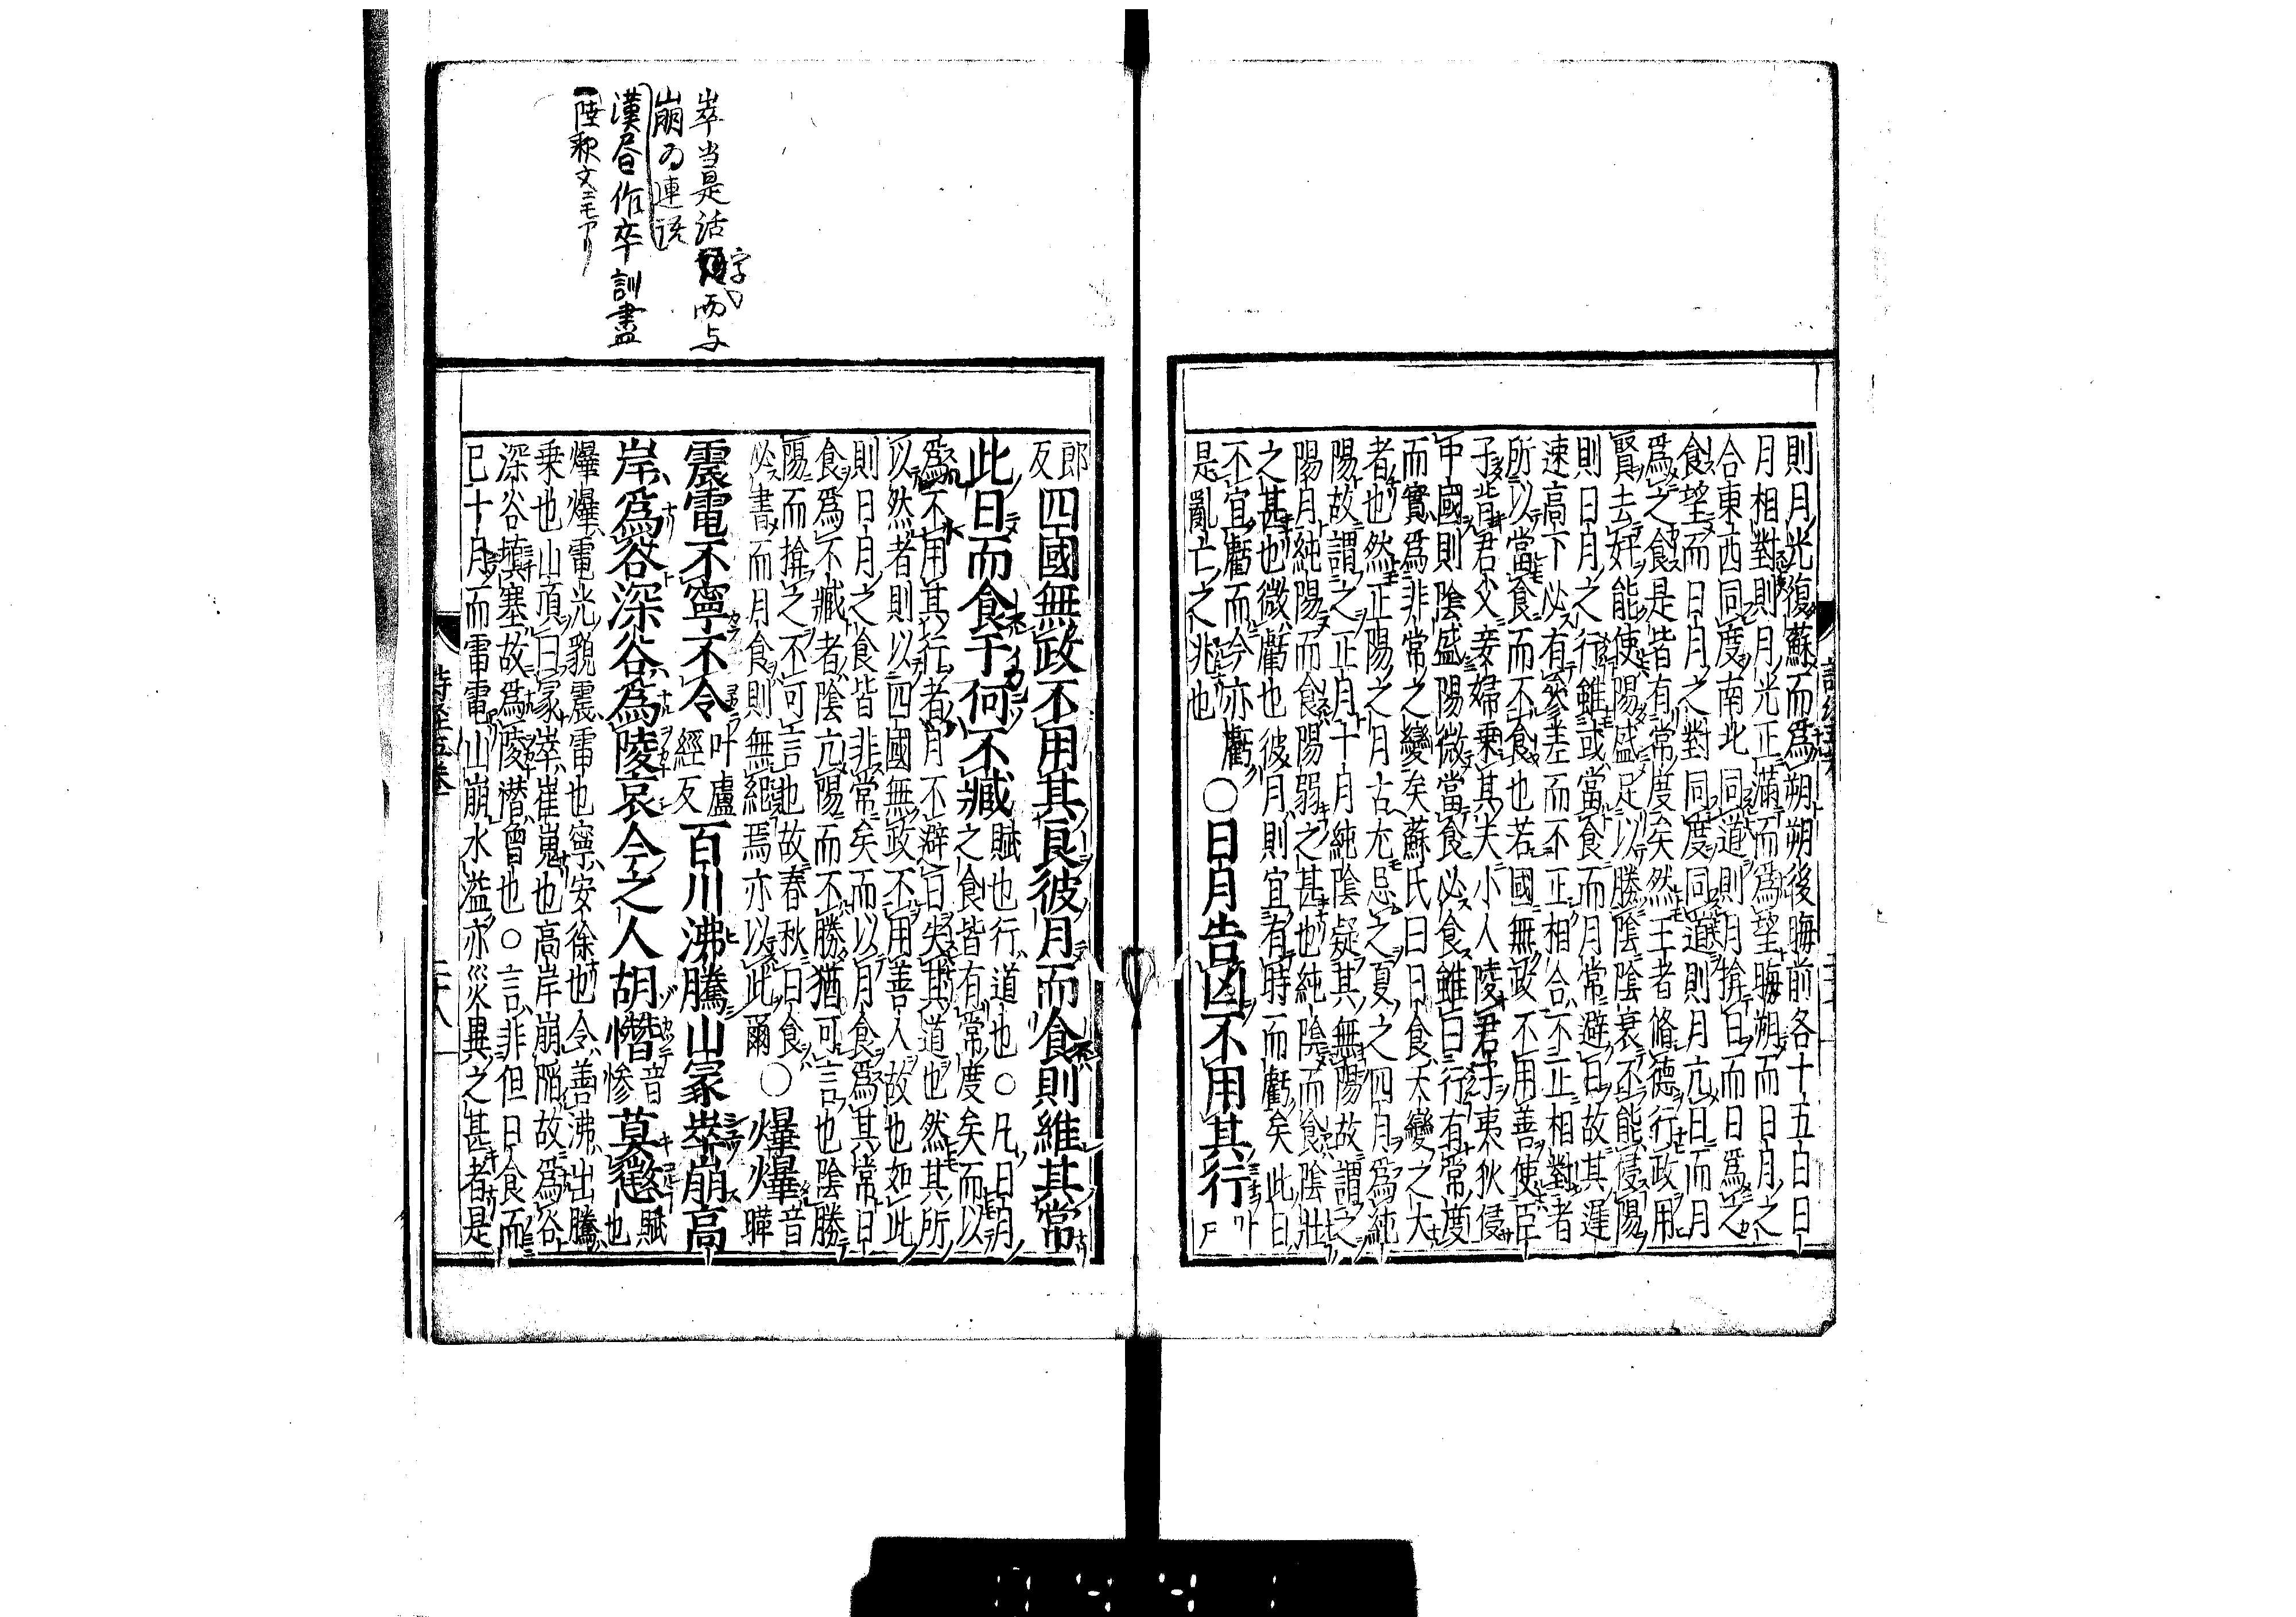 則月光復蘇而爲朔朔後晦前各十五日日
月相對則月光正滿而爲望晦朔而日月之
合東西同度南北同道則月揜日而日爲之
食望而日月之對同度同道則月亢日而月
爲之食是皆有常度矣然王者脩德行政用
賢去奸能使陽盛足以勝陰陰衰不能侵陽
則日月之行雖或當食而月常避日故其遲
速高下必有參差而不正相合不正相對者
所以當食而不食也若國無政不用善使臣
子背君父妾婦乗其夫小人陵君子夷狄侵
中國則陰盛陽微當食必食雖曰行有常度
而實爲非常之變矣蘇氏曰日食天變之大
者也然正陽之月古尤忌之夏之四月爲純
陽故謂之正月十月純陰疑其無陽故謂之
陽月純陽而食陽弱之甚也純陰而食陰壯
之甚也微虧也彼月則宜有時而虧矣此日
不宜虧而今亦虧
是亂亡之兆也
○日月告凶不用其行
叶
戶
郎
反
四國無政不用其良彼月而食則維其常
此日而食于何不臧
賦也行道也○凡日月
之食皆有常度矣而以
爲不用其行者月不避日失其道也然其所
以然者則以四國無政不用善人故也如此
則日月之食皆非常矣而以月食爲其常日
食爲不臧者陰亢陽而不勝猶可言也陰勝
陽而揜之不可言也故春秋日食
必書而月食則無紀焉亦以此爾
○爗爗
音
曄
震電不寧不令
叶盧
經反
百川沸騰山冢崒崩高
岸爲谷深谷爲陵哀今之人胡憯
音
惨
莫懲
賦
也
爗爗電光貌震雷也寧安徐也令善沸出騰
乗也山頂曰冢崒崔嵬也高岸崩陷故爲谷
深谷填塞故爲陵憯曾也○言非但日食而
已十月而雷電山崩水溢亦災異之甚者是
詩經五卷
二十八
崒当是活字而与
崩为連语
漢書作卒訓盡
陸釈文ニモアリ